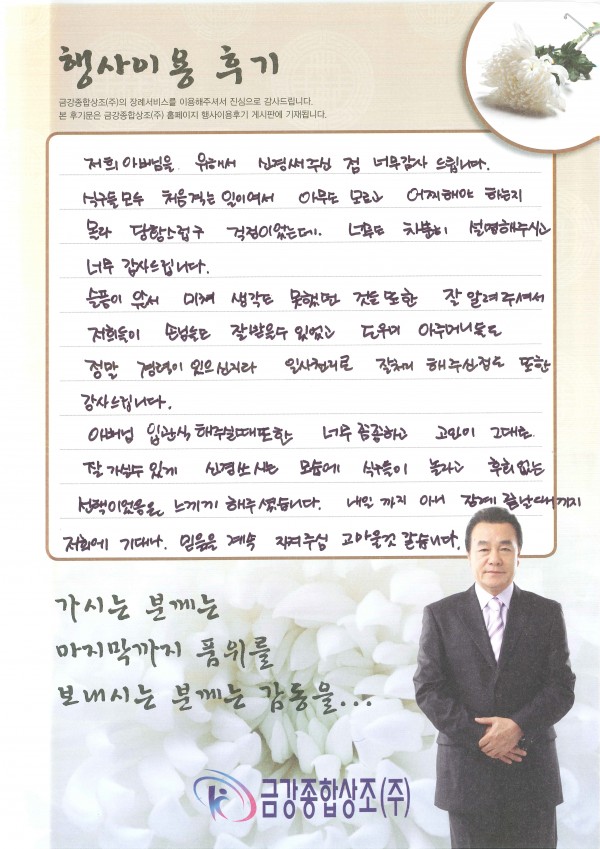 행사이용 후기
금강종합상조(주)의 장례서비스를 이용해주셔서 진심으로 감사드립니다.
본 후기문은 금강종합상조(주) 홈페이지 행사이용후기 게시판에 기재됩니다.
저희 아버님을 위해서 신경써주신 점 너무감사 드립니다.
식구들모두 처음겪는 일이여서 아무도 모르고 어찌해야 하는지
몰라 당황스럽구 걱정이었는데. 너무도 차분히 설명해주시고
너무 감사드립니다.
슬픔이 앞서 미쳐 생각도 못했던 것들또한 잘 알려주셔서
저희들이 손님들도 잘받을수 있었고 도우미 아주머니들도
정말 경력이 있으신지라 일사천리로 잘처리 해주신점도 또한
감사드립니다.
아버님 입관식 해주실때또한 너무 꼼꼼하고 고인이 그대로
잘 가실수 있게 신경쓰시는 모습에 식구들이 놀라고 후회없는
선택이었음을 느끼게 해주셨습니다. 내일 까지 아니 장례 끝난때까지
저희에 기대나. 믿음을 계속 지켜주심 고마울것 같습니다.
가시는 분께는
마지막까지 품위를
보내시는 분께는 감동을...
금강종합상조(주)